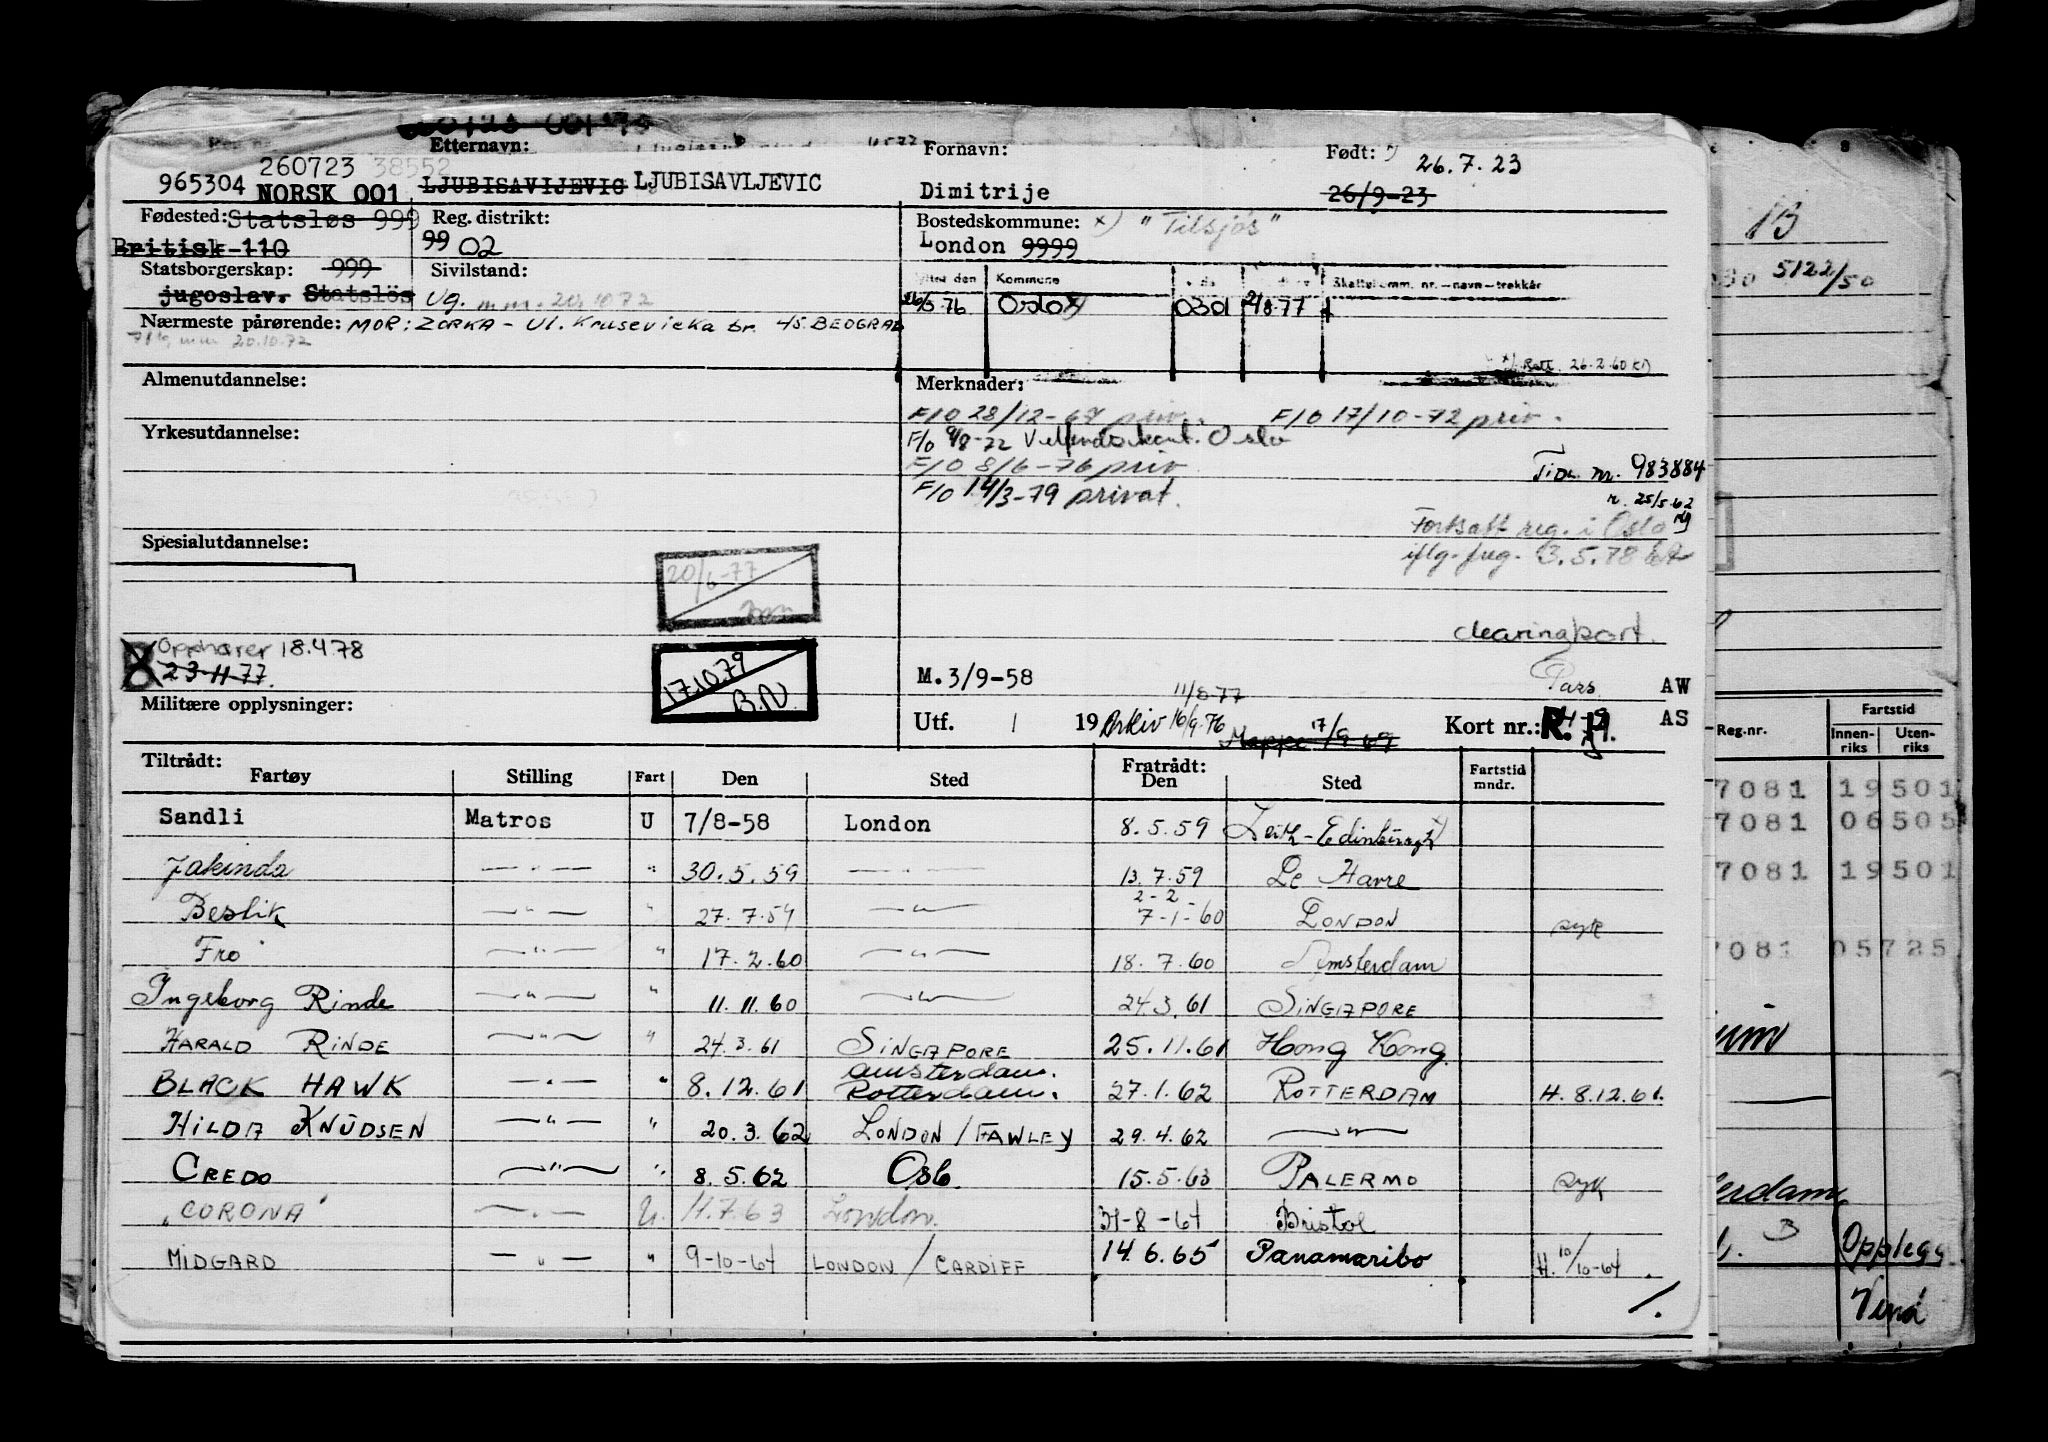 Etternavn:
Fornavn:
Født:
26.7.23
260723 38552
965304 NORSK 001
LJUBISAVIJEVIC LJUBISAVLJEVIC
Dimitrije
26/9-23
Fødested: Statsløs 999
Reg. distrikt:
Bostedskommune: x) "Tilsjös"
Britisk 110
99 02
London 9999
Statsborgerskap: 999
Sivilstand:
Kommune
Skattekomm. nr.—navn—trekkår
jugoslav. Statslös
Ug. m.m. 20.10.72
Oslo x)
0301
2/8-77
Nærmeste pårørende: MOR: ZORKA - Ul. Krusevicka br. 45 BEOGRAD
20.10.72
x) Rett. 26.2.60
Almenutdannelse:
Merknader:
F/O 28/12-67 priv.
F/O 17/10-72 priv.
Yrkesutdannelse:
F/o 9/8-72 Utlendskont. Oslo
F/O 8/6-76 priv
Tidl. nr. 983884
F/O 14/3-79 privat.
r. 25/5.62
Fortsatt reg. i Oslo
iflg. freg. 3.5.78
Spesialutdannelse:
20/6-77
clearingkort.
Opphører 18.4.78
23-11-77.
17.10.79
B.N.
M. 3/9-58
Pass
AW
Militære opplysninger:
11/8 77
Utf. 1 19
Arkiv 16/9.76
Mappe 17/9 69
Kort nr.:
AS
Tiltrådt:
Fratrådt:
Fartøy Stilling Fart Den Sted Den Sted Fartstid mndr.
Sandli Matros U 7/8-58 London 8.5.59 Leith-Edinburgh
Jakinda —"— " 30.5.59 —"— 13.7.59 Le Havre
2-2-
Beslik —"— " 27.7.59 —"— 7-1-60 LONDON syk
Fro —"— " 17.2.60 —"— 18.7.60 Amsterdam
Ingeborg Rinde —"— " 11.11.60 —"— 24.3.61 SINGAPORE
HARALD RINDE —"— " 24.3.61 SINGAPORE 25.11.61 Hong Kong.
Amsterdam.
BLACK HAWK —"— " 8.12.61 Rotterdam. 27.1.62 ROTTERDAM H. 8.12.61.
HILDA KNUDSEN —"— " 20.3.62 LONDON/FAWLEY 29.4.62 —"—
CREDO —"— " 8.5.62 Oslo 15.5.63 PALERMO syk
"CORONA" —"— U. 11.7.63 London. 31-8-64 Bristol
MIDGARD —"— " 9-10-64 LONDON/CARDIFF 14.6.65 Panamaribo H. 10/10-64
/.
13
5122/50
Reg.nr.
Fartstid
Innen-riks
Uten-riks
7081 19501
7081 06505
7081 19501
7081 05725
Opplegg